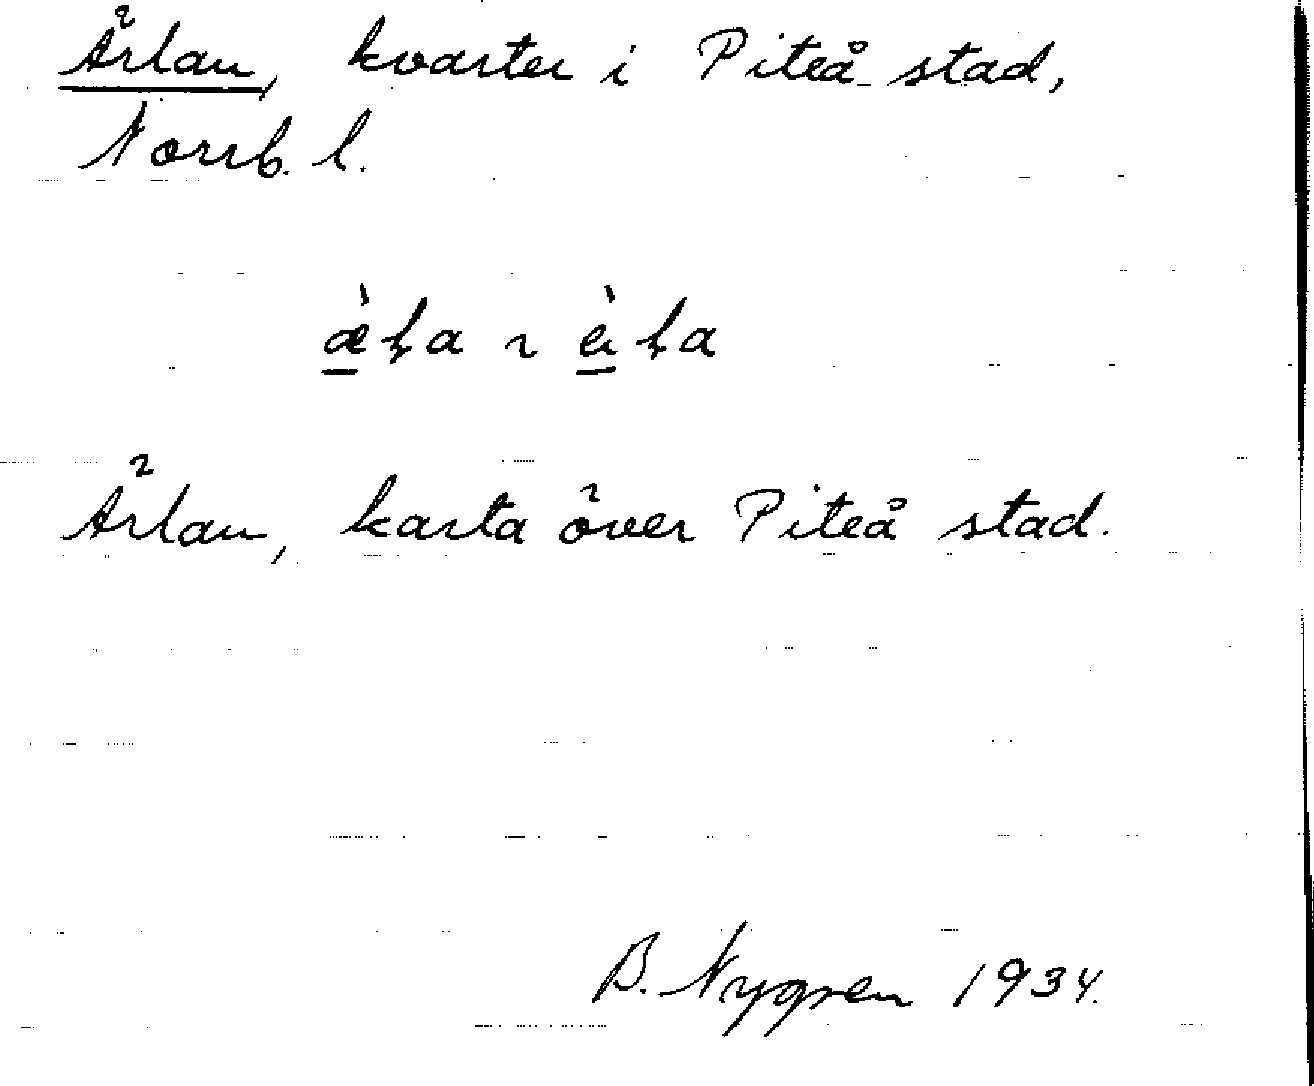 Ärlan, kvarter i Piteå stad,
Norrb. l.
Ärlan, karta över Piteå stad.
B. Nygren 1934.